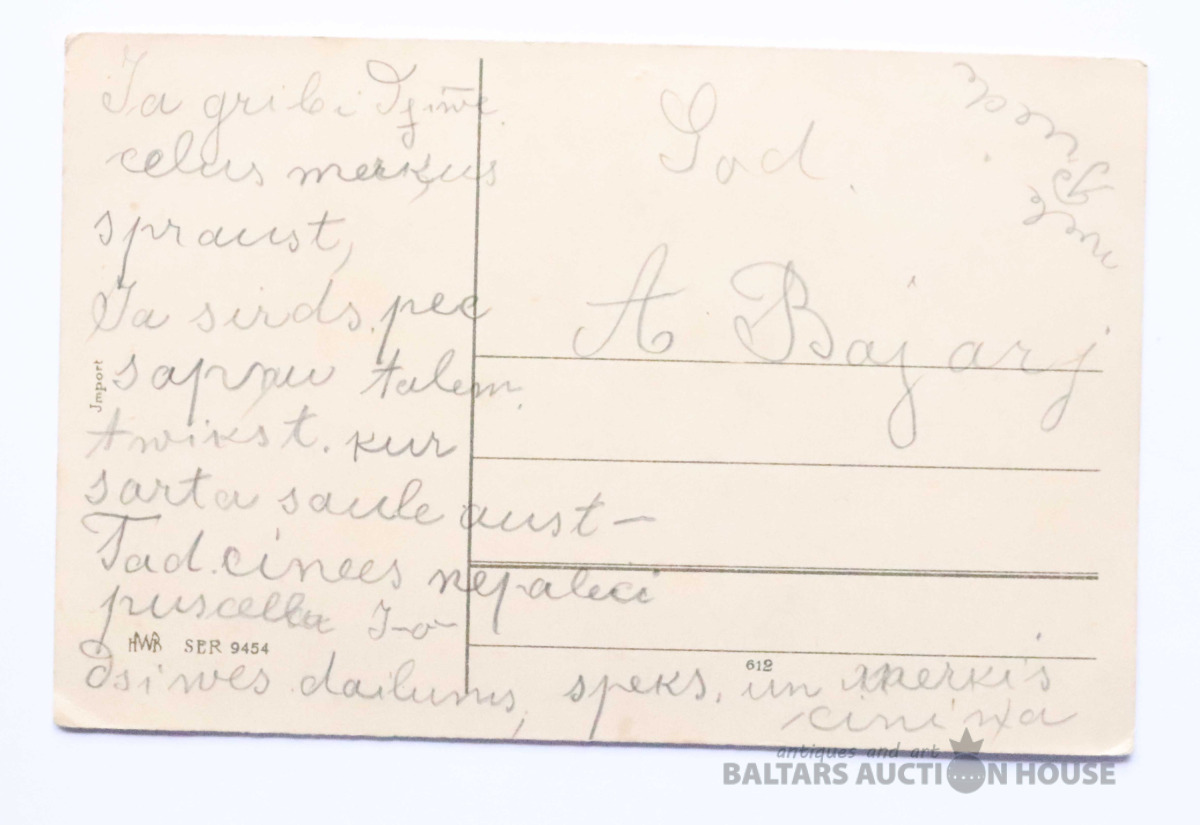 Ja gribi Dziwē
celus merķus
spraust,
Ja sirds pec
sapņu talem
twikst. kur
sarta saule aust –
Tad cinees nepaleci
puscella Jo
Dsiwes dailums, speks, un merķis
ciniņa
God.
A Bajarj
Jmport
HWB SER 9454
612
antiques and art
BALTARS AUCTION HOUSE